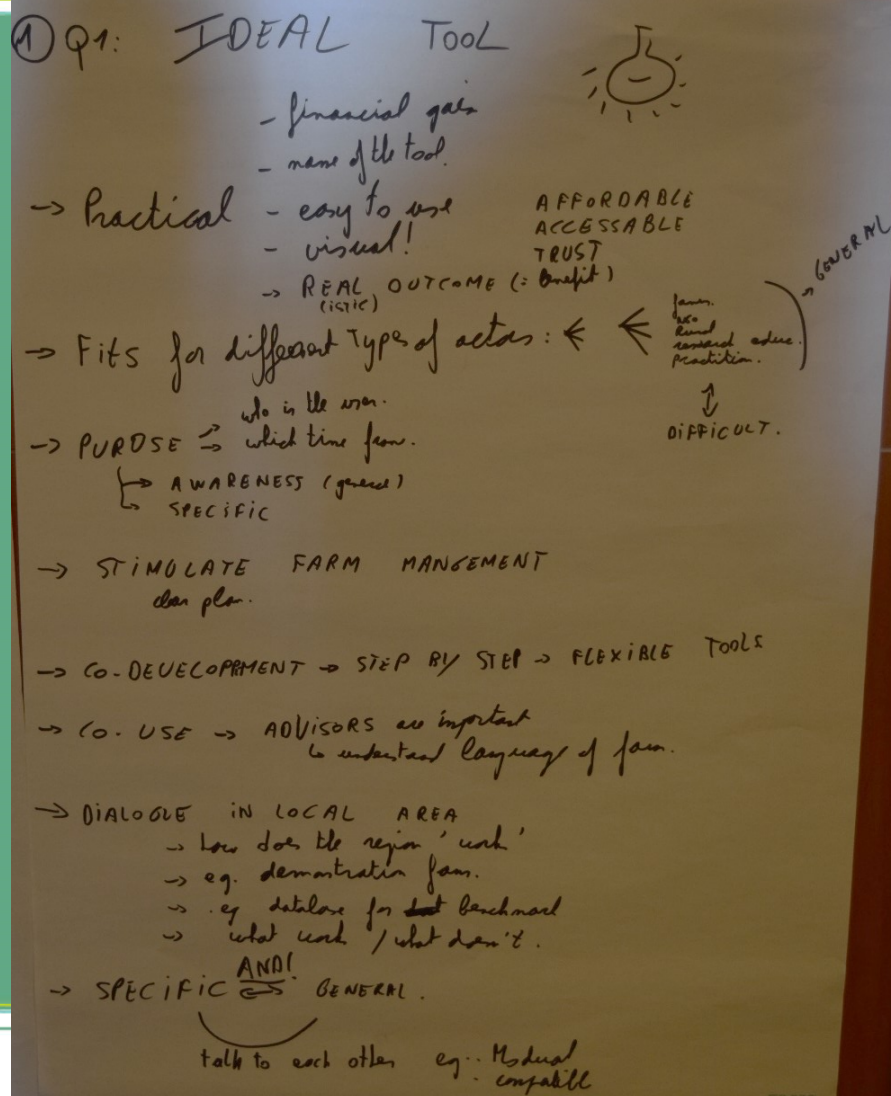 ① Q1: IDEAL TOOL
- financial gain
- name of the tool.
→ Practical - easy to use
- visual!
→ REAL OUTCOME (= benefit)
(istic)
AFFORDABLE
ACCESSABLE
TRUST
→ Fits for different Types of actors:
farmer.
research educ.
practition.
→ GENERAL
DIFFICULT.
→ PUROSE → who is the user.
→ which time fram.
→ AWARENESS (general)
→ SPECIFIC
→ STIMULATE FARM MANGEMENT
clear plan.
→ CO-DEVELOPPMENT → STEP BY STEP → FLEXIBLE TOOLS
→ CO-USE → ADVISORS are important
↳ understand language of farm.
→ DIALOGUE IN LOCAL AREA
→ how does the region 'work'
→ eg. demonstration farm.
→ .eg database for benchmark
→ what work / what doesn't.
→ SPECIFIC AND! GENERAL.
talk to each other eg.: Modual
: compatible